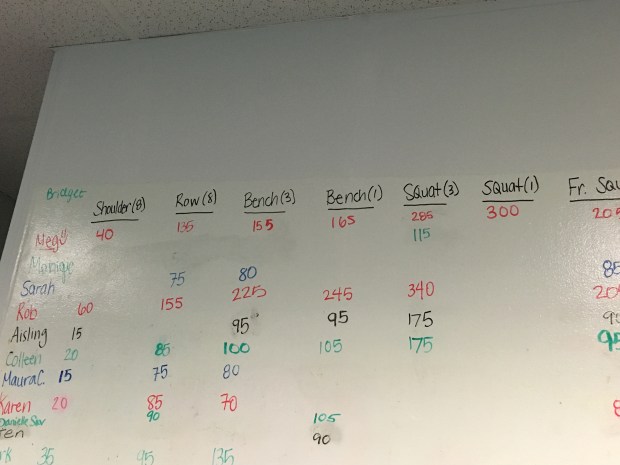 Bridget
Shoulder(8) Row(8) Bench(3) Bench(1) Squat(3) Squat(1) Fr. Squ
Meg 40 135 155 165 285 300 205
115
Sarah 75 80 85
Rob 60 155 225 245 340 20
Aisling 15 95 95 175
Colleen 20 85 100 105 175 95
Maura C. 15 75 80
Karen 20 85 70
90 105
90
35 95 135